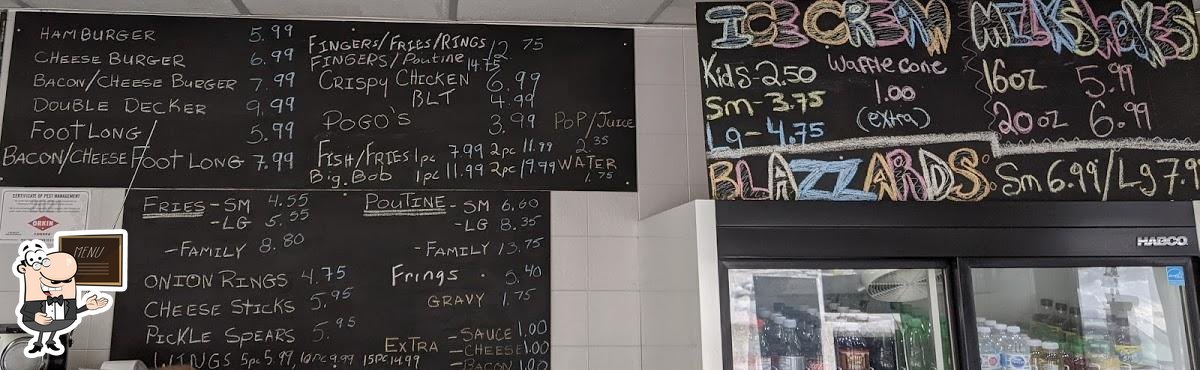 HAMBURGER 5.99
CHEESE BURGER 6.99
BACON/CHEESE BURGER 7.99
DOUBLE DECKER 9.99
FOOT LONG 5.99
BACON/CHEESE FOOT LONG 7.99
FINGERS/FRIES/RINGS 12.75
FINGERS/Poutine 14.75
CRISPY CHICKEN 6.99
BLT 4.99
POGO'S 3.99
FISH/FRIES 1pc 7.99 2pc 11.99
Big Bob 1pc 11.99 2pc 19.99
POP/JUICE
2.35
WATER
1.75
FRIES - SM 4.55
- LG 5.55
- FAMILY 8.80
ONION RINGS 4.75
CHEESE STICKS 5.95
PICKLE SPEARS 5.95
WINGS 5pc 5.99, 10pc 9.99 15pc 14.99
POUTINE - SM 6.60
- LG 8.35
- FAMILY 13.75
Frings 5.40
GRAVY 1.75
EXTRA - SAUCE 1.00
- CHEESE 1.00
- BACON 1.00
ICE CREAM
Kids - 2.50
Sm - 3.75
Lg - 4.75
Waffle cone
1.00
(extra)
MILKSHAKES
16oz 5.99
20oz 6.99
BLAZZARDS: Sm 6.99/Lg 7.9
HABCO
CERTIFICATE OF PEST MANAGEMENT
ORKIN
CANADA
MENU